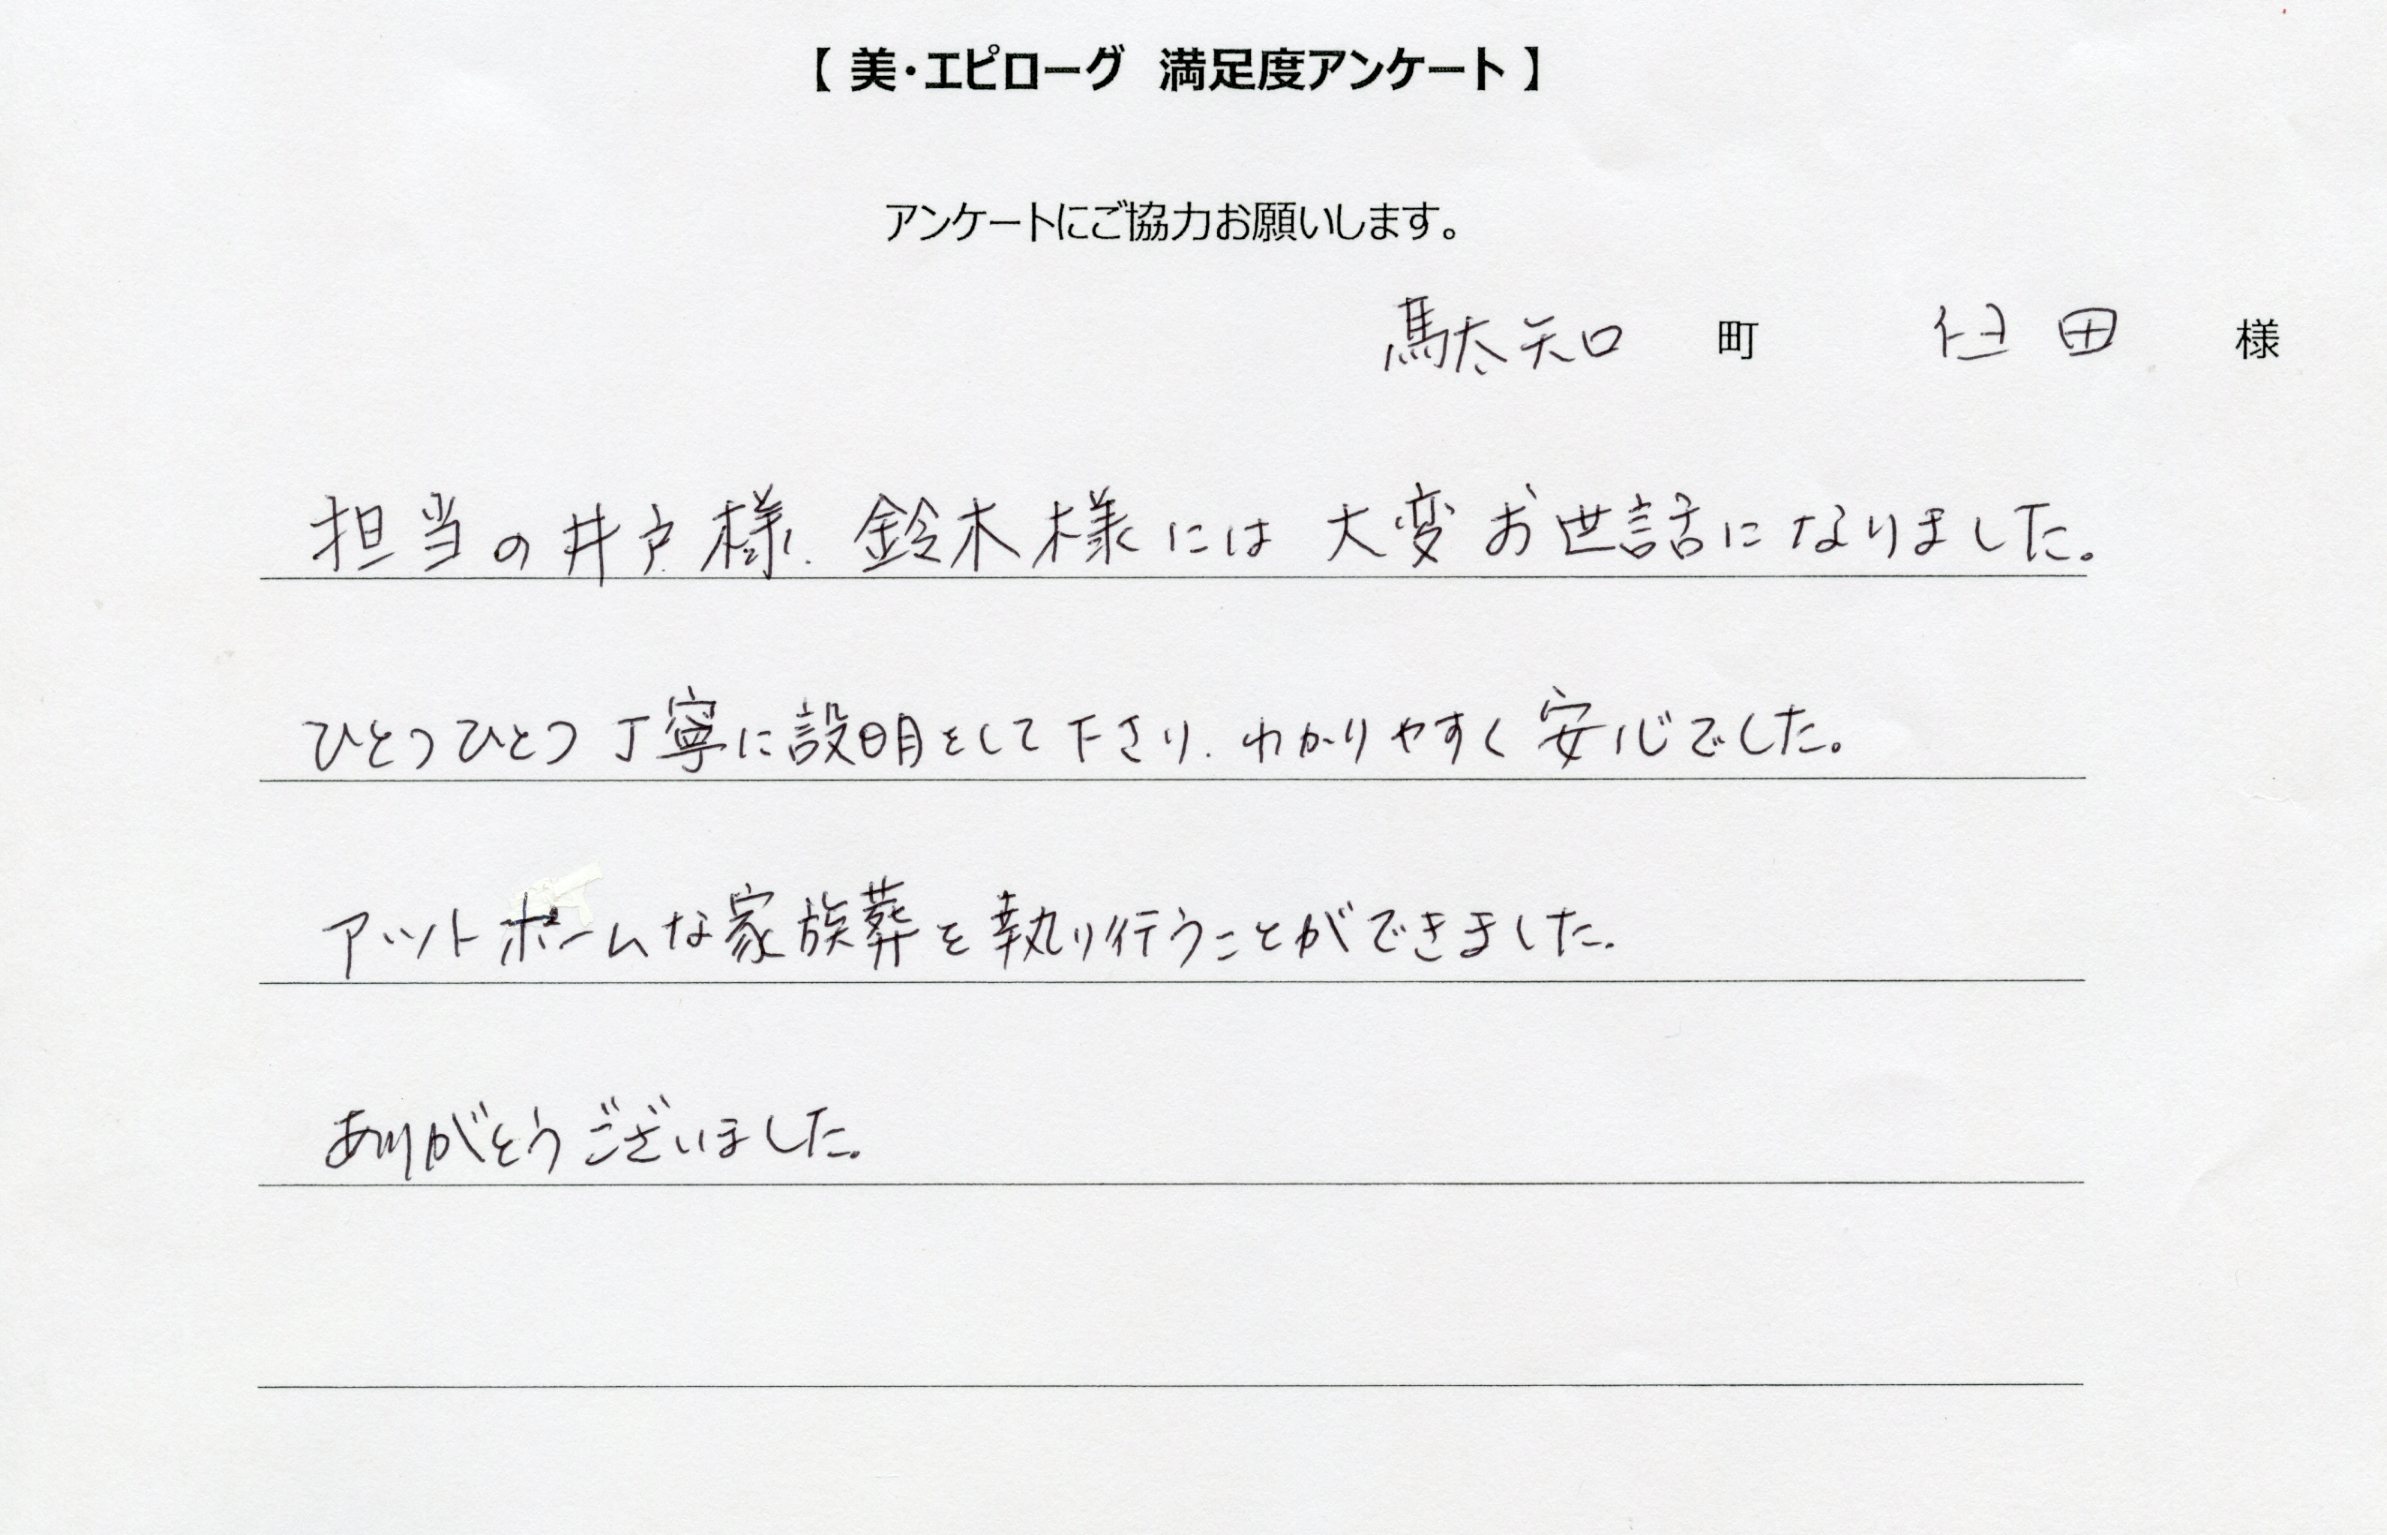 【 美・エピローグ　満足度アンケート 】
アンケートにご協力お願いします。
駄知 町　田 様
担当の井戸様、鈴木様には大変お世話になりました。
ひとつひとつ丁寧に設明をして下さり、わかりやすく安心でした。
アットホームな家族葬を執り行うことができました。
ありがとうございました。